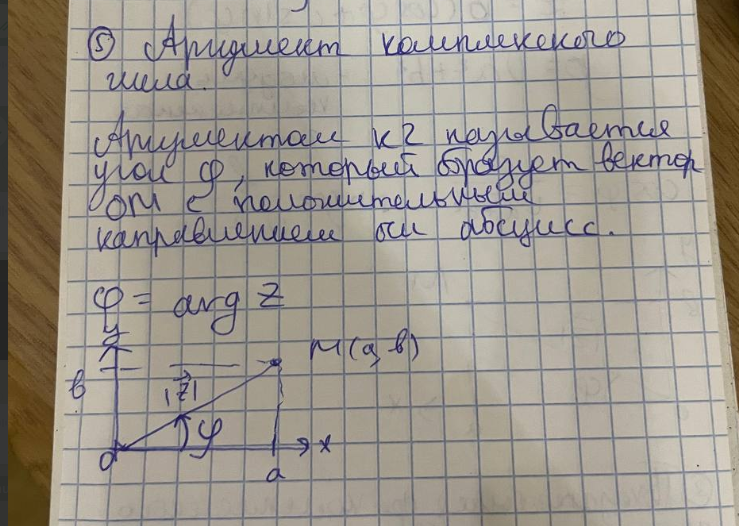 ⑤ Аргумент комплексного
числа.
Аргументом кч называется
угол φ, который образует вектор
OM с положительным
направлением оси абсцисс.
φ = arg z
y
M(a, b)
b
|z|
φ
0
x
a